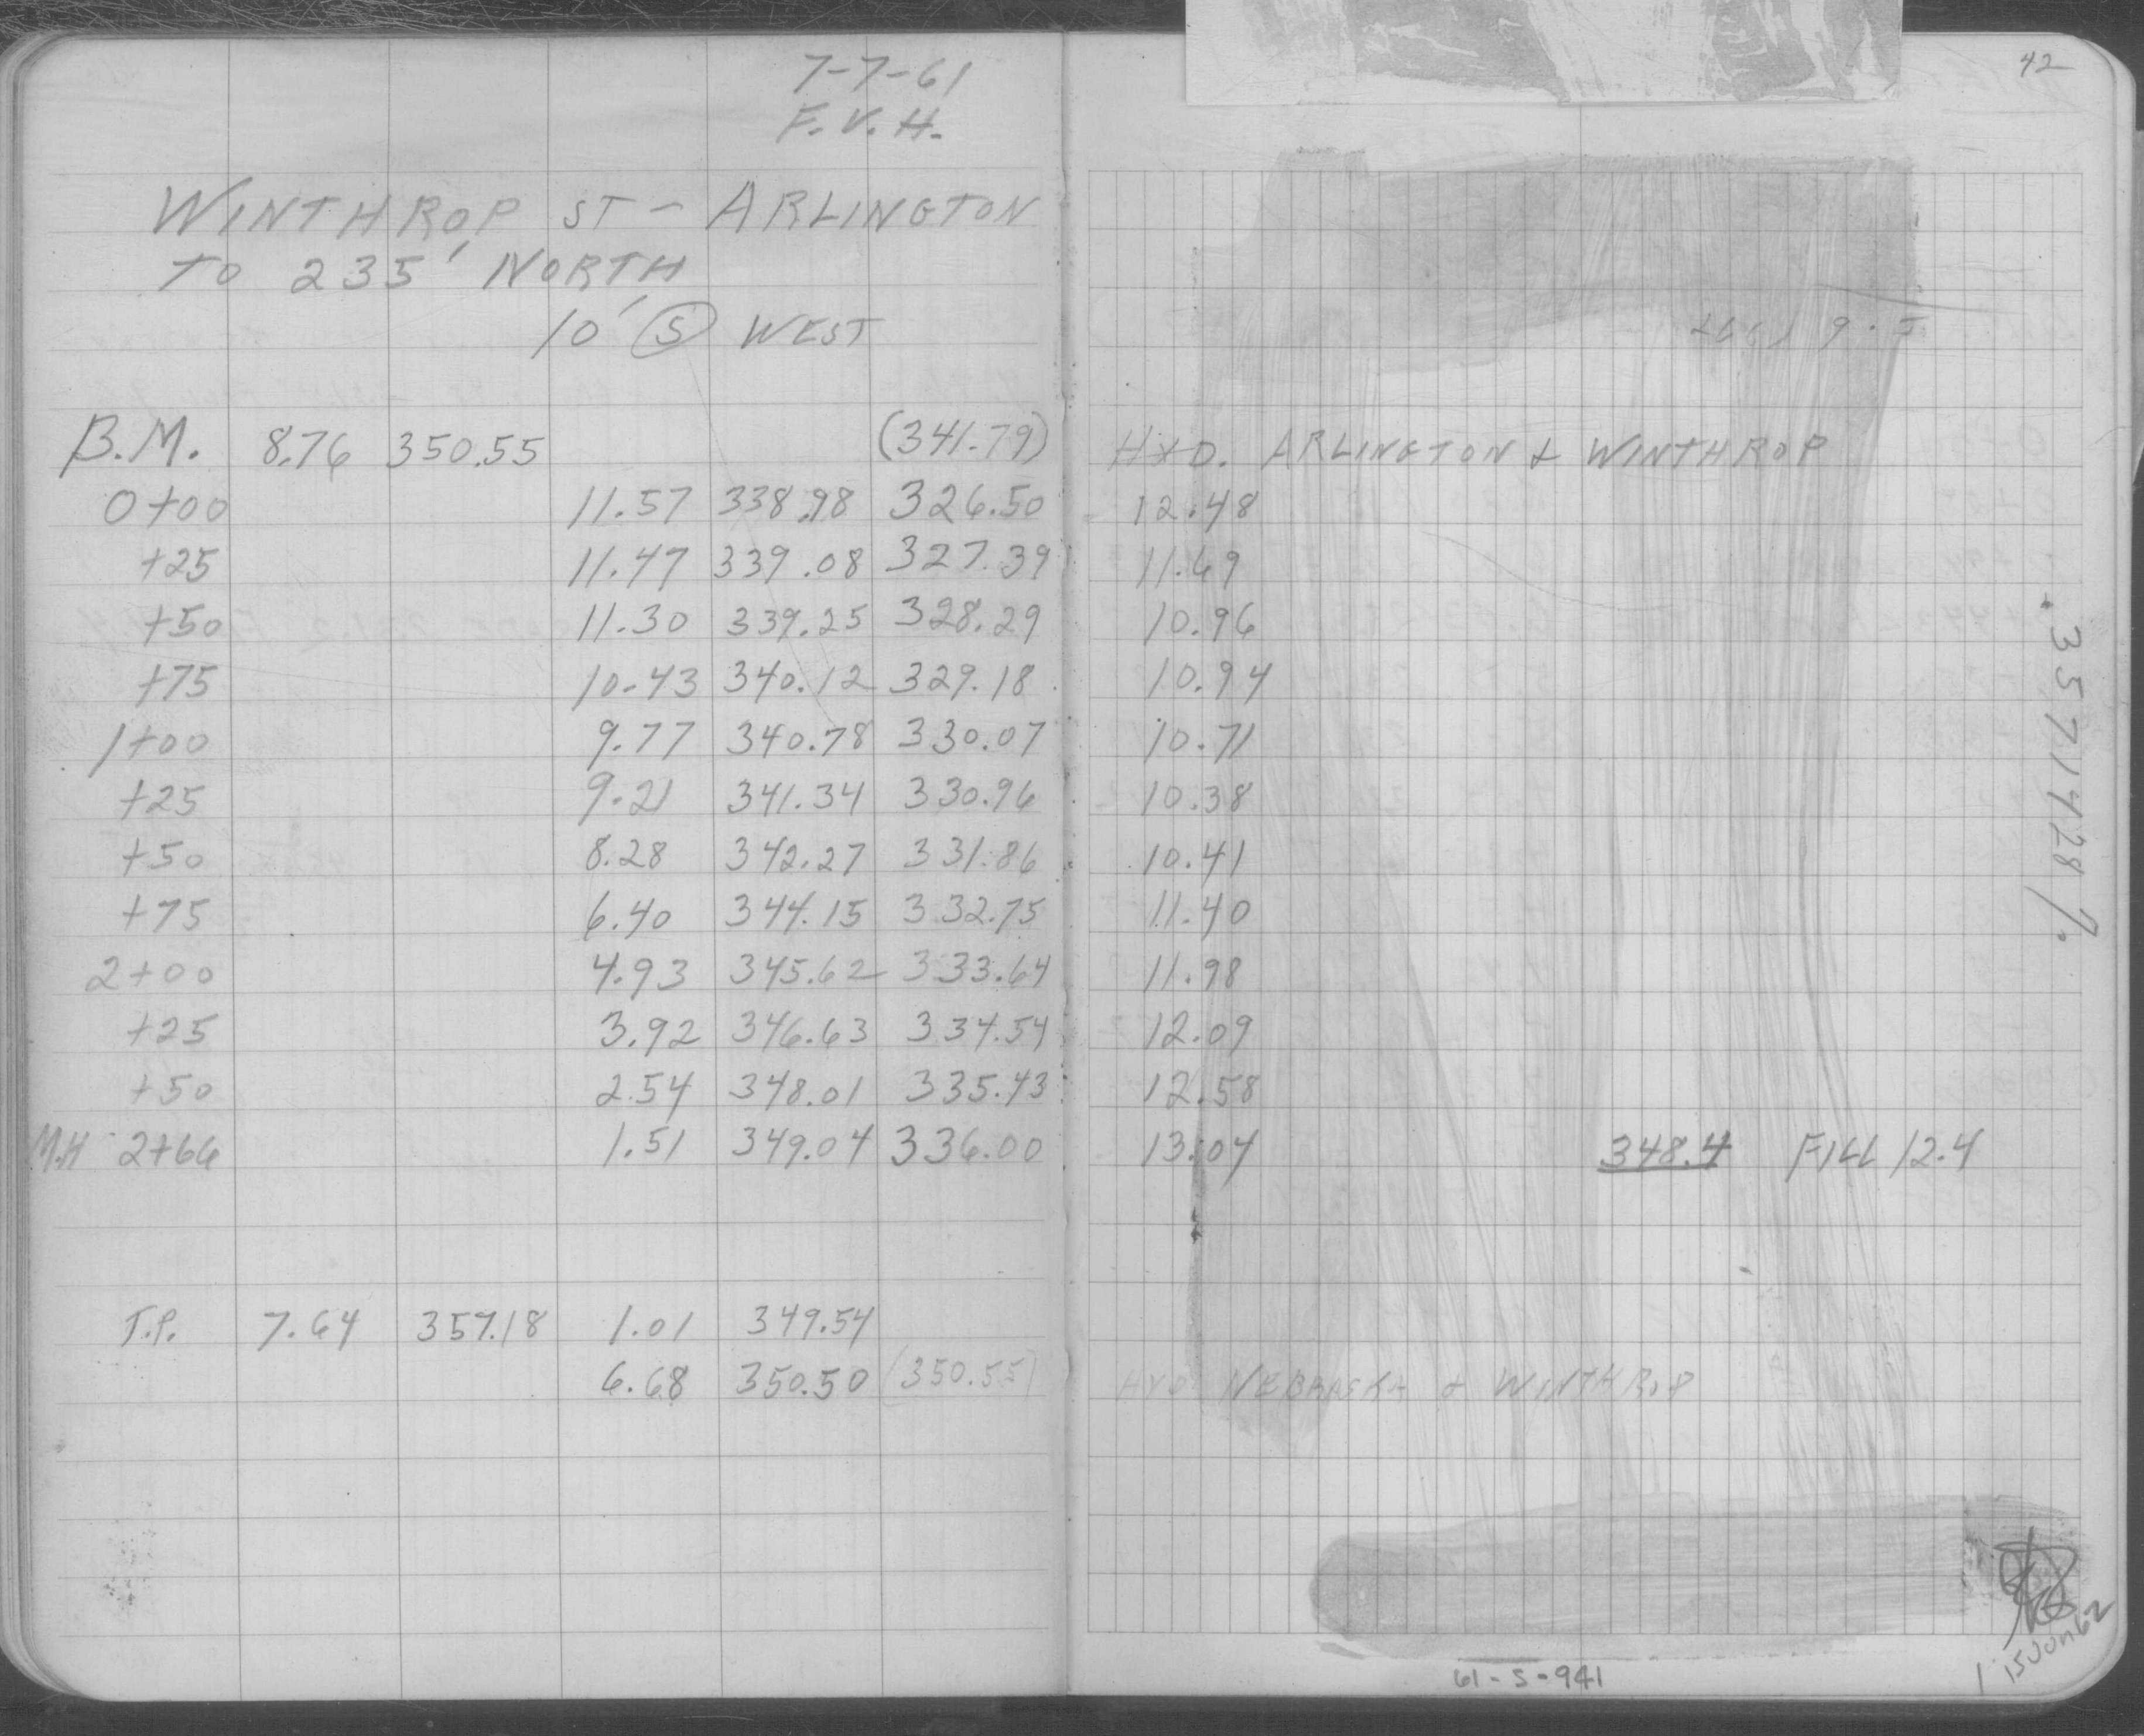 42
7-7-61
F.V.H.
WINTHROP ST - ARLINGTON
TO 235' NORTH
10' S WEST
B.M. 8.76 350.55 (341.79) HYD. ARLINGTON & WINTHROP
0+00 11.57 338.98 326.50 12.48
+25 11.47 339.08 327.39 11.69
+50 11.30 339.25 328.29 10.96
+75 10.43 340.12 329.18 10.94
1+00 9.77 340.78 330.07 10.71
+25 9.21 341.34 330.96 10.38
+50 8.28 342.27 331.86 10.41
+75 6.40 344.15 332.75 11.40
2+00 4.93 345.62 333.64 11.98
+25 3.92 346.63 334.54 12.09
+50 2.54 348.01 335.43 12.58
M.H 2+66 1.51 349.04 336.00 13.04 348.4 FILL 12.4
T.P. 7.64 357.18 1.01 349.54
6.68 350.50 (350.55) HYD NEBRASKA & WINTHROP
.3571428%
15 Jun 62
61-S-941